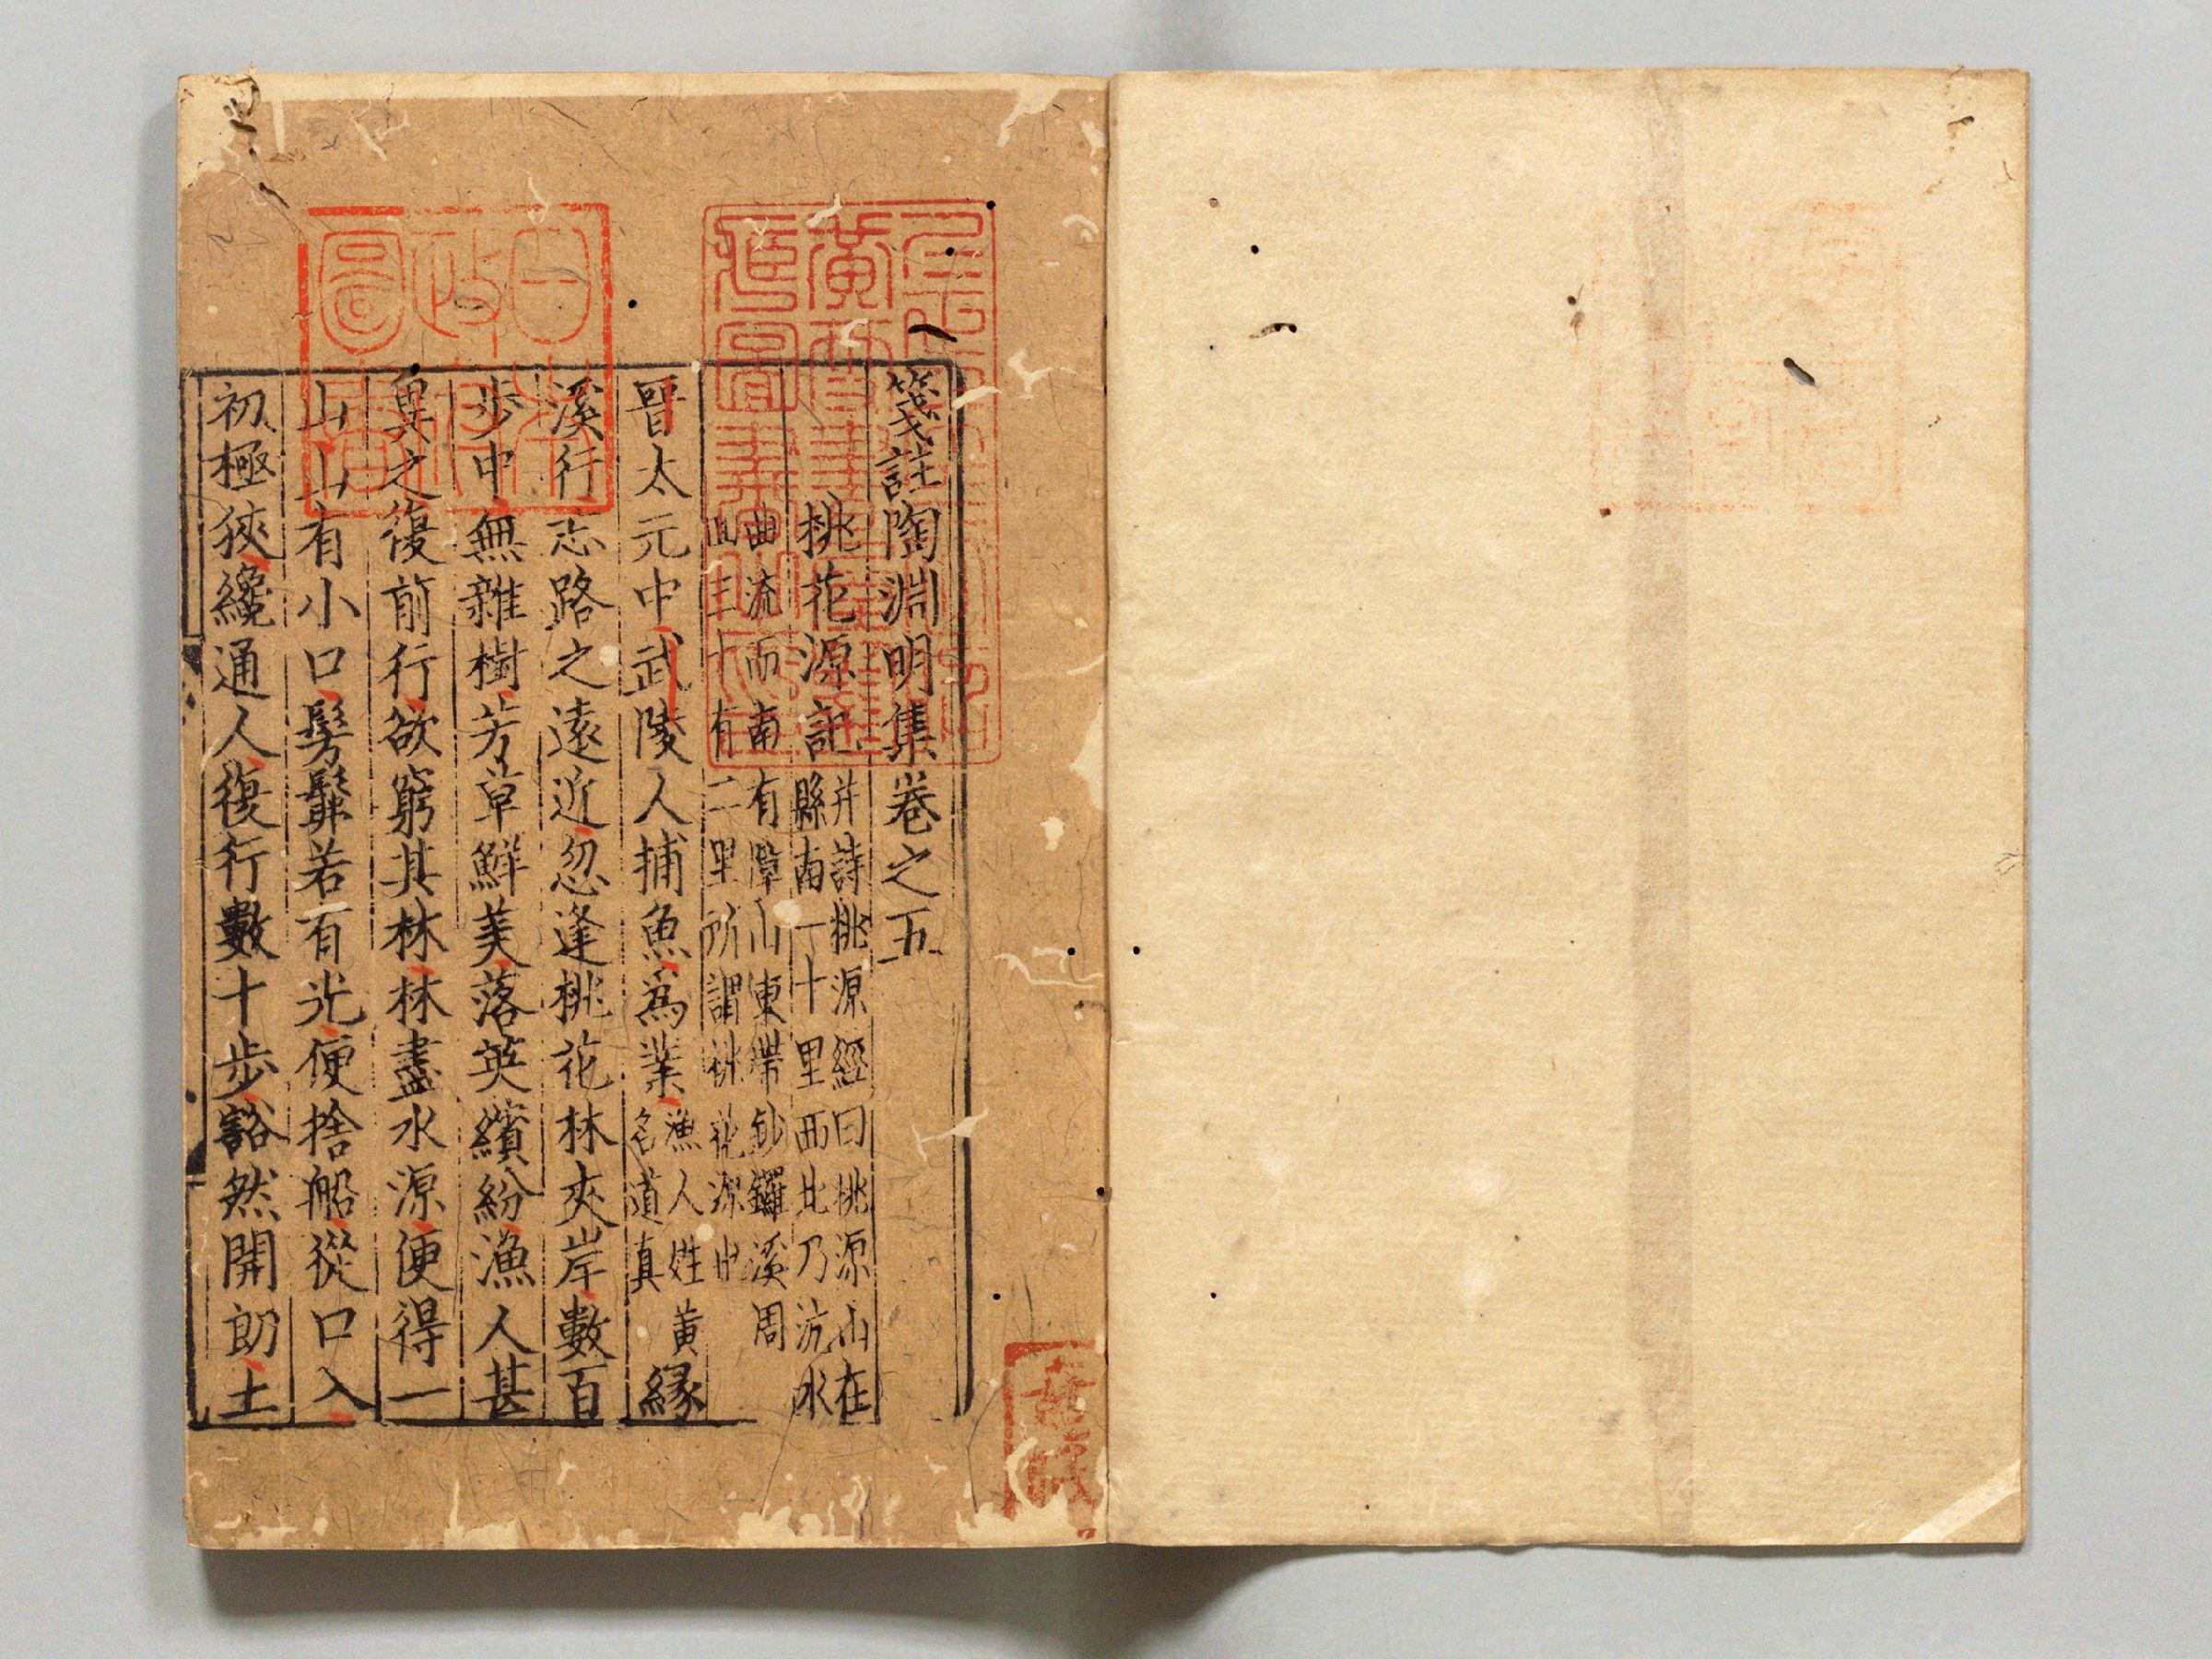 箋註陶淵明集卷之五
桃花源記
并詩桃源經曰桃源山在
縣南一十里西北乃沅水
曲流而南有障山東帶鈔鑼溪周
三十有二里所謂桃花源也
晉太元中武陵人捕魚爲業
漁人姓黄
名道真
緣
溪行忘路之遠近忽逢桃花林夾岸數百
步中無雜樹芳草鮮美落英繽紛漁人甚
異之復前行欲窮其林林盡水源便得一
山山有小口髣髴若有光便捨船從口入
初極狹纔通人復行數十步豁然開朗土